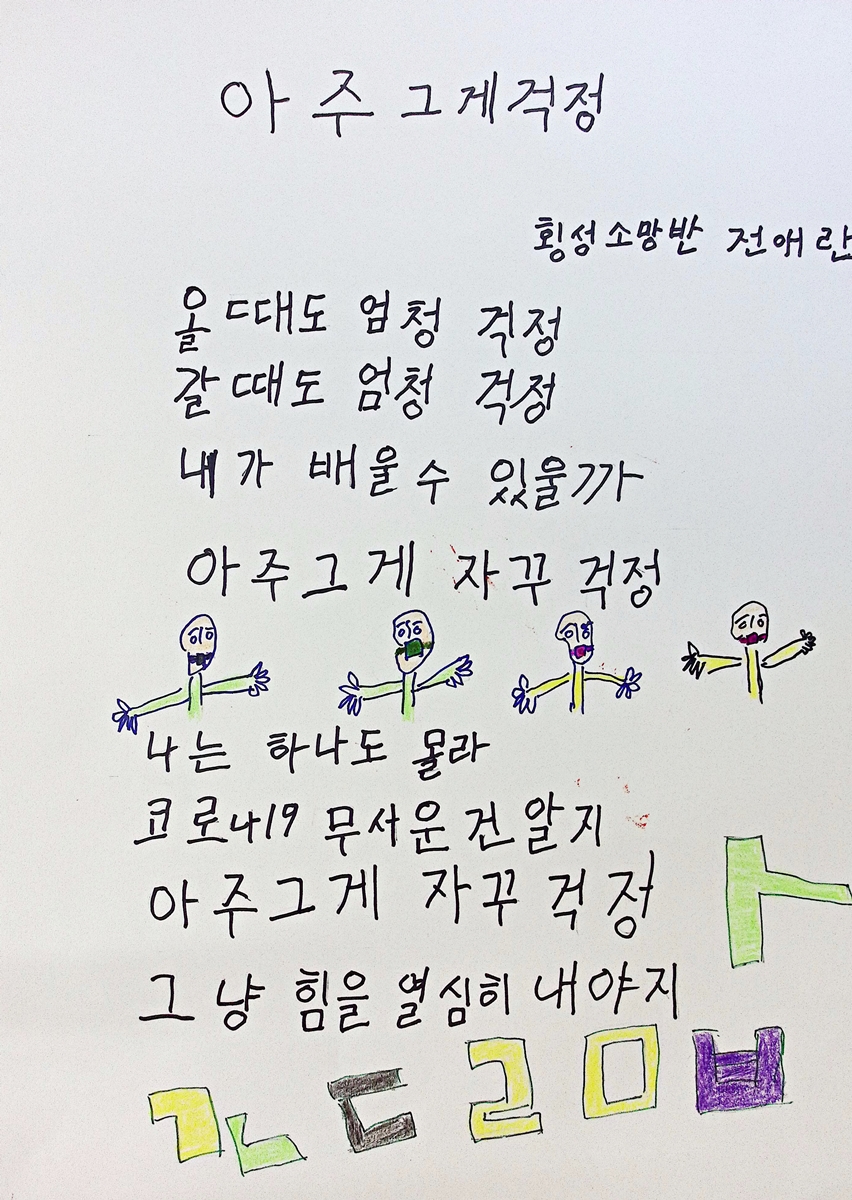 아주그게걱정
횡성소망반 전애란
올때도 엄청 걱정
갈때도 엄청 걱정
내가 배울수 있울까
아주그게 자꾸 걱정
나는 하나도 몰라
코로나19 무서운건알지
아주그게 자꾸 걱정
그냥 힘을 열심히 내야지
ㅏ
ㄱㄴㄷㄹㅁㅂ